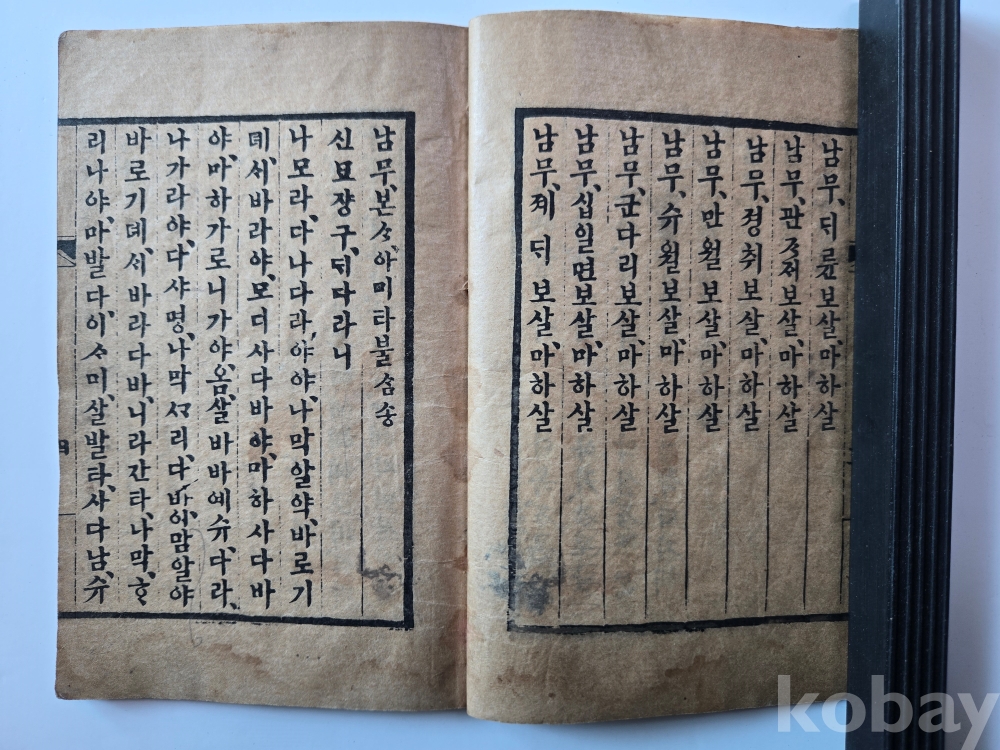 남무、ᄃᆡ륜보살、마하살
남무、관ᄌᆞᄌᆡ보살、마하살
남무、졍취보살、마하살
남무、만월보살、마하살
남무、슈월보살、마하살
남무、군다리보살、마하살
남무、십일면보살、마하살
남무、졔ᄃᆡ보살、마하살
남무、본ᄉᆞ、아미타불 삼송
신묘쟝구、ᄃᆡ다라니
나모라、다나다라、야야、나막알약、바로기
뎨、ᄉᆡ바라야、모디사다바야、마하사다바
야、마하가로니가야、옴、살바바예슈、다라、
나가라야、다사명、나막ᄭᅵ리、다바、이맘알야
바로기뎨、ᄉᆡ바라다바、니라간타、나막、ᄒᆞ
리나야、마발다이、ᄉᆞ미、살발타、사다남、슈
kobay